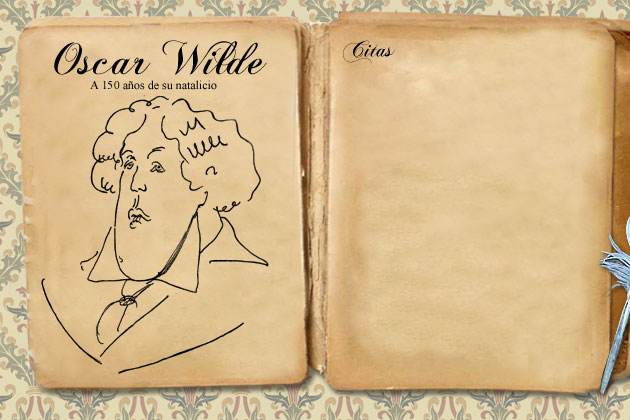 Oscar Wilde
A 150 años de su natalicio
Citas